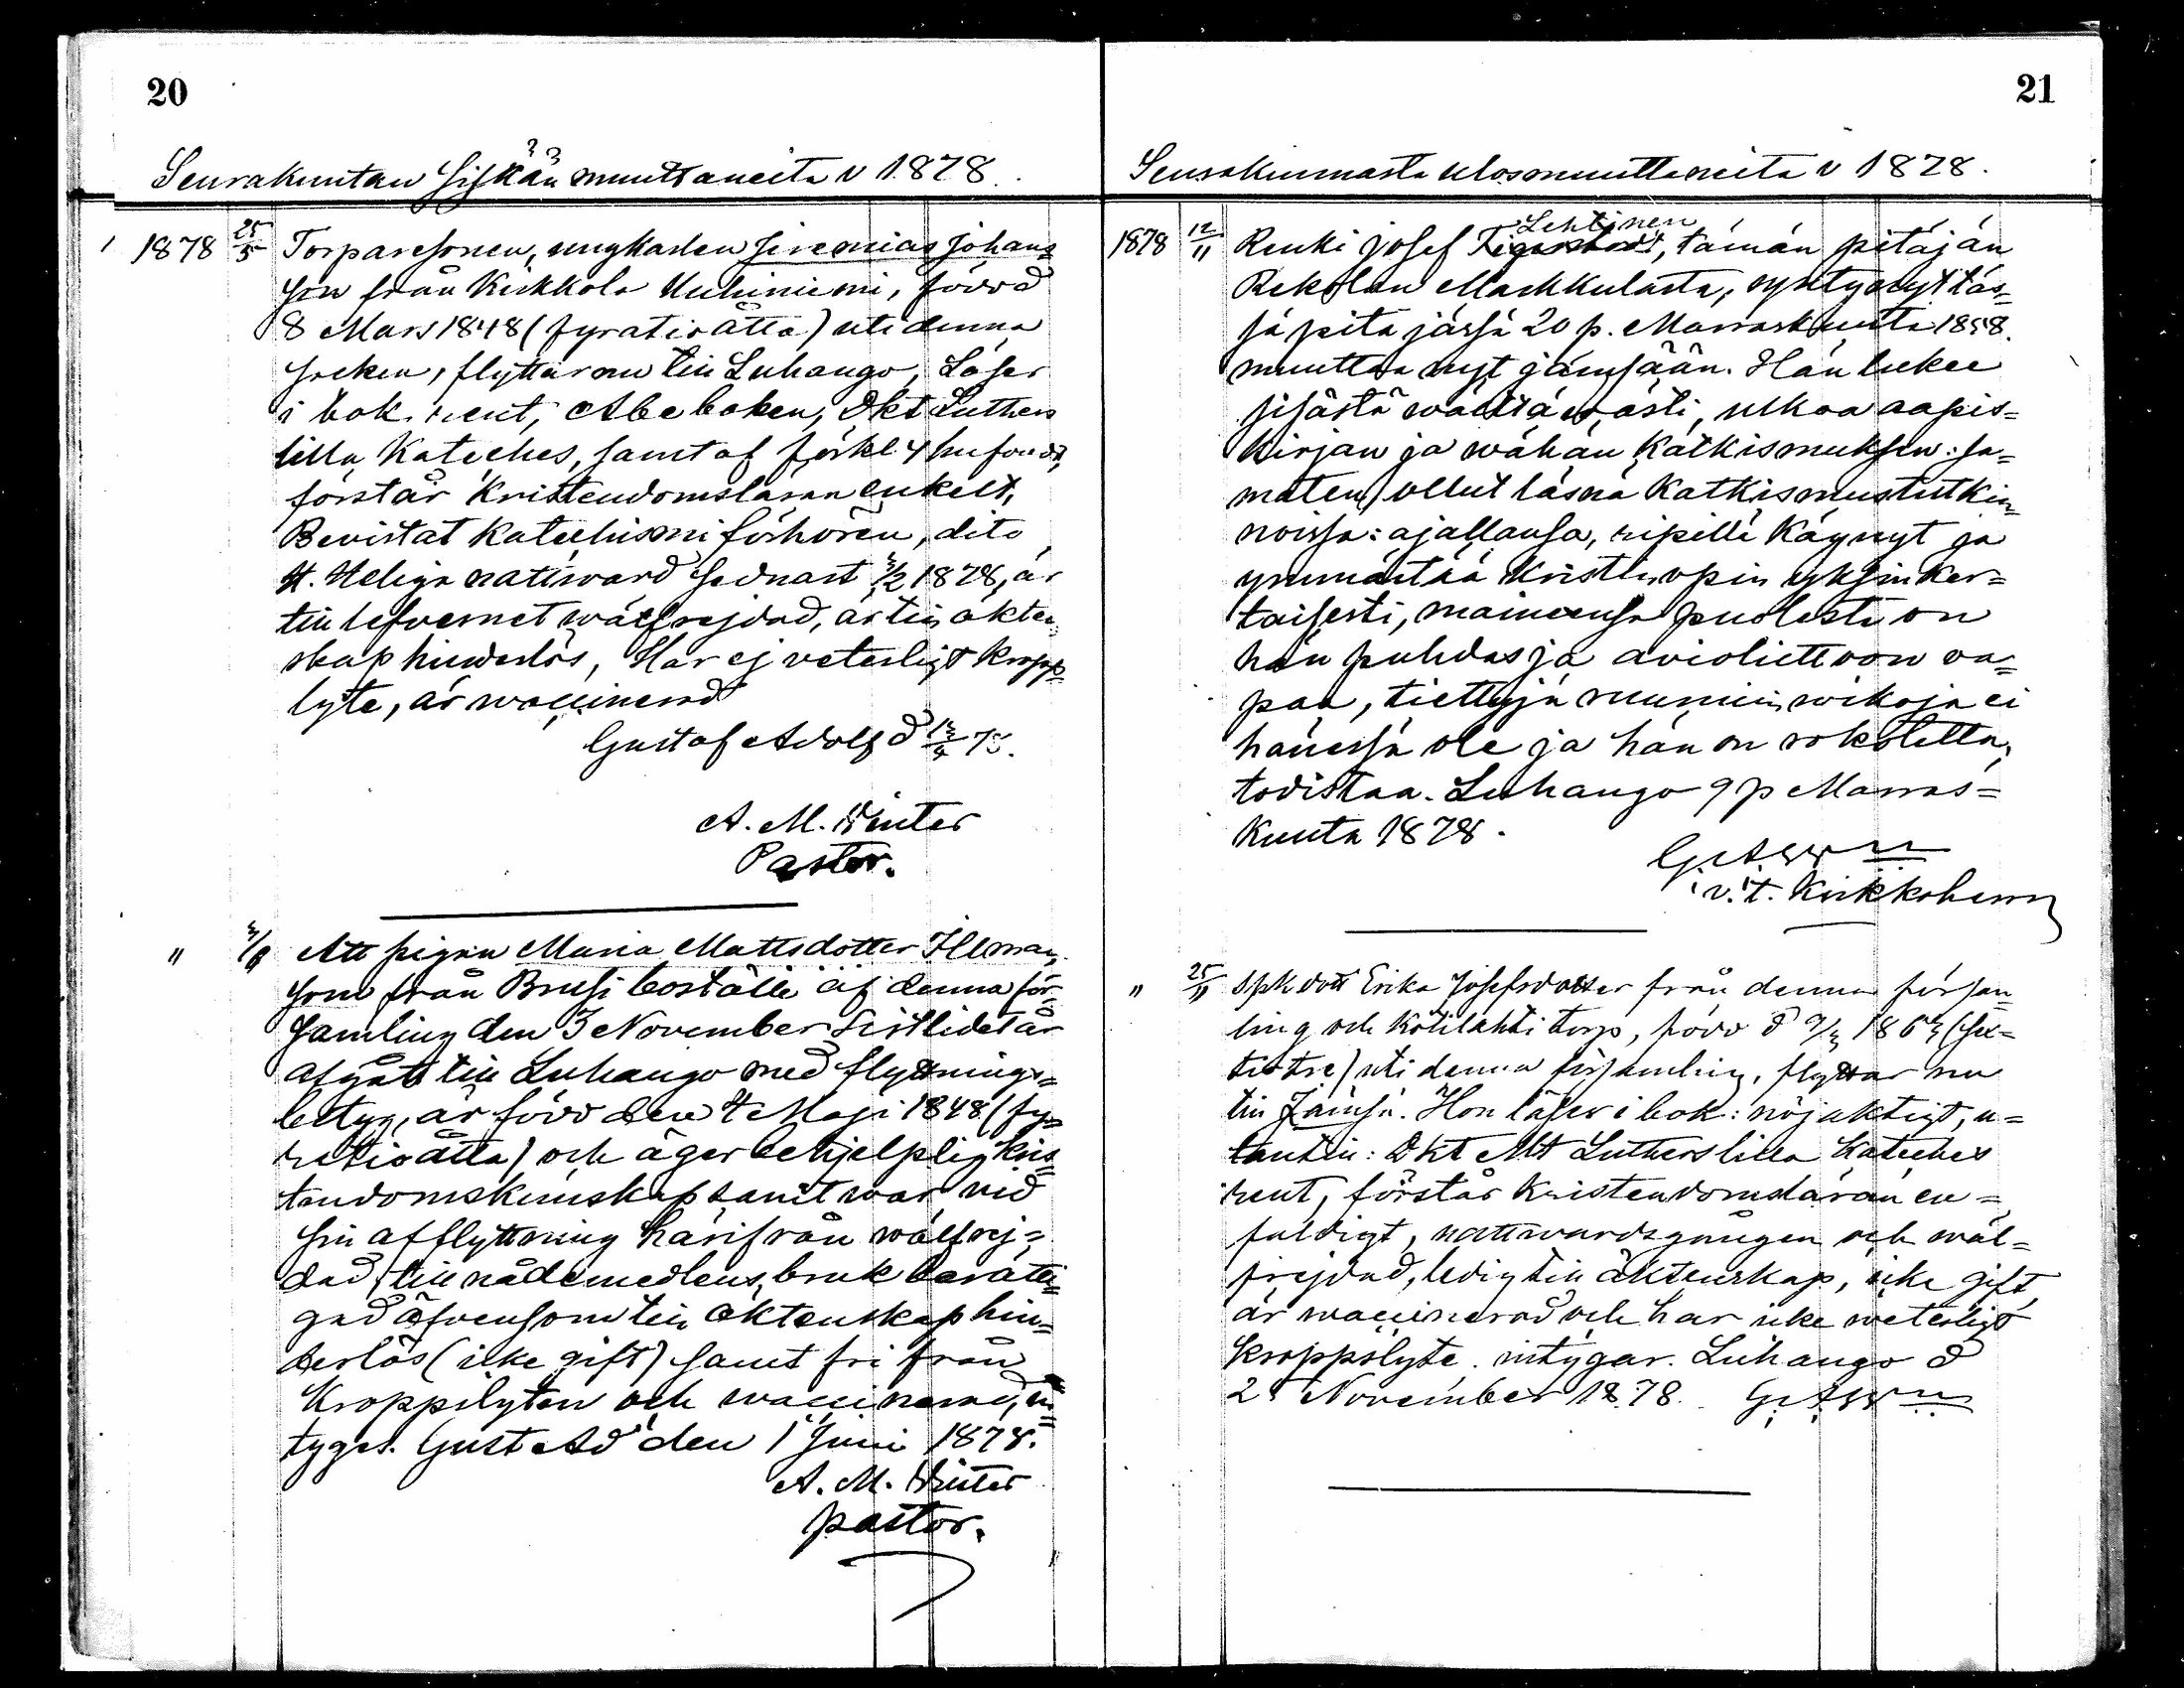 20
Seurakuntan sisään muuttaneita v 1878.
1 1878 25/5 Torparesonen, ungkarlen Jeremias Johans=
son från Kirkkola Kuhiniemi, född
8 Mars 1848 (fyratioåtta) uti denna
socken, flyttar nu till Luhango, Läser
i bok rent, Abc boken, Dkt Luthers
lilla Kateches, samt af förkl. 4 hufvuds,
förstår Kristendomsläran enkelt,
Bevistat Katechismiförhören, dito
H. Heliga nattward sednast 3/2 1878, är
till lefvernet wälfrejdad, är till äkten=
skap hinderlös, Har ej veterligt kropps=
lyte, är waccinerad
Gustaf Adolf d 13/4 78.
A. M. Winter
Pastor.
" 3/6 Att pigan Maria Mattsdotter Illman,
som från Brusi boställe af denna för=
samling den 3 November sistlidet år
afgått till Luhango med flyttnings=
betyg, är född den 4 Maji 1848 (fy=
ratioåtta) och äger behjelplig Kris=
tendomskunskap samt war vid
sin afflyttning härifrån wälfrej=
dad, till nådemedlens bruk berätti=
gad äfvensom till äktenskap hin=
derlös (icke gift) samt fri från
Kroppslyten och waccinerad, in=
tygas. Gust Ad den 1 Juni 1878.
A. M. Winter
pastor.
21
Seurakunnasta ulosmuuttaneita v 1878.
1878 12/11 Renki Josef Lehtinen, tämän pitäjän
Rekolan Markkulasta, syntynyt täs=
sä pitäjässä 20 p. Marraskuuta 1858.
muuttaa nyt Jämsään. Hän lukee
sisästä wälttäwästi, ulkoa aapis=
kirjan ja wähän Katkismuksen: sa=
maten ollut läsnä Katkismustutkin=
noissa: ajallansa, ripillä käynyt ja
ymmärtää Kristin opin yksinker=
taisesti, maineensa puolesta on
hän puhdas ja avioliittoon va=
paa, tiettyjä ruumiin wikoja ei
hänessä ole ja hän on rokotettu,
todistaa. Luhango 9 p Marras=
kuuta 1878.
v. t. Kirkkoherra
" 25/11 Spkdott Erika Josefsdotter från denna försam=
ling och Kotilahti torp, född d 9/3 1863 (sex=
tiotre) uti denna församling, flyttar nu
till Jämsä. Hon läser i bok: nöjaktigt, u=
tantill: Dkt Mt Luthers lilla Kateches
rent, förstår Kristendomsläran en=
faldigt, nattwardsgången och wäl=
frejdad, ledig till äktenskap, icke gift
är waccinerad och har icke weterligt
kroppslyte. intygar. Luhango d
2 November 1878.